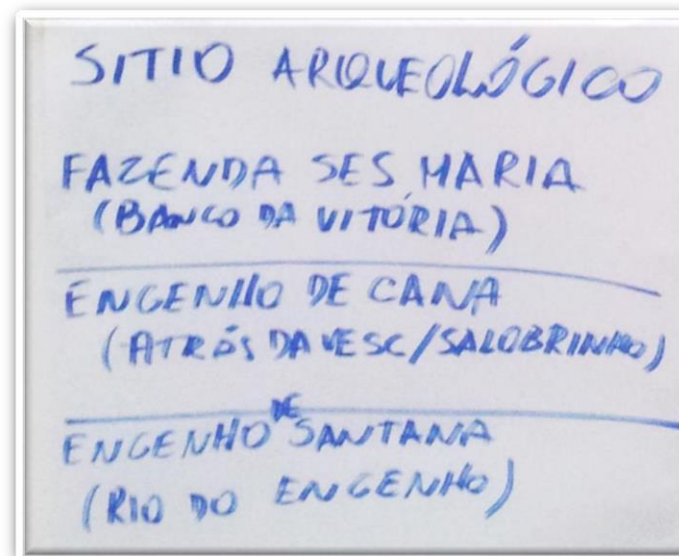 SITIO ARQUEOLÓGICO
FAZENDA SES MARIA
(BANCO DA VITÓRIA)
ENGENHO DE CANA
(ATRÁS DA UESC/SALOBRINHO)
ENGENHO DE SANTANA
(RIO DO ENGENHO)